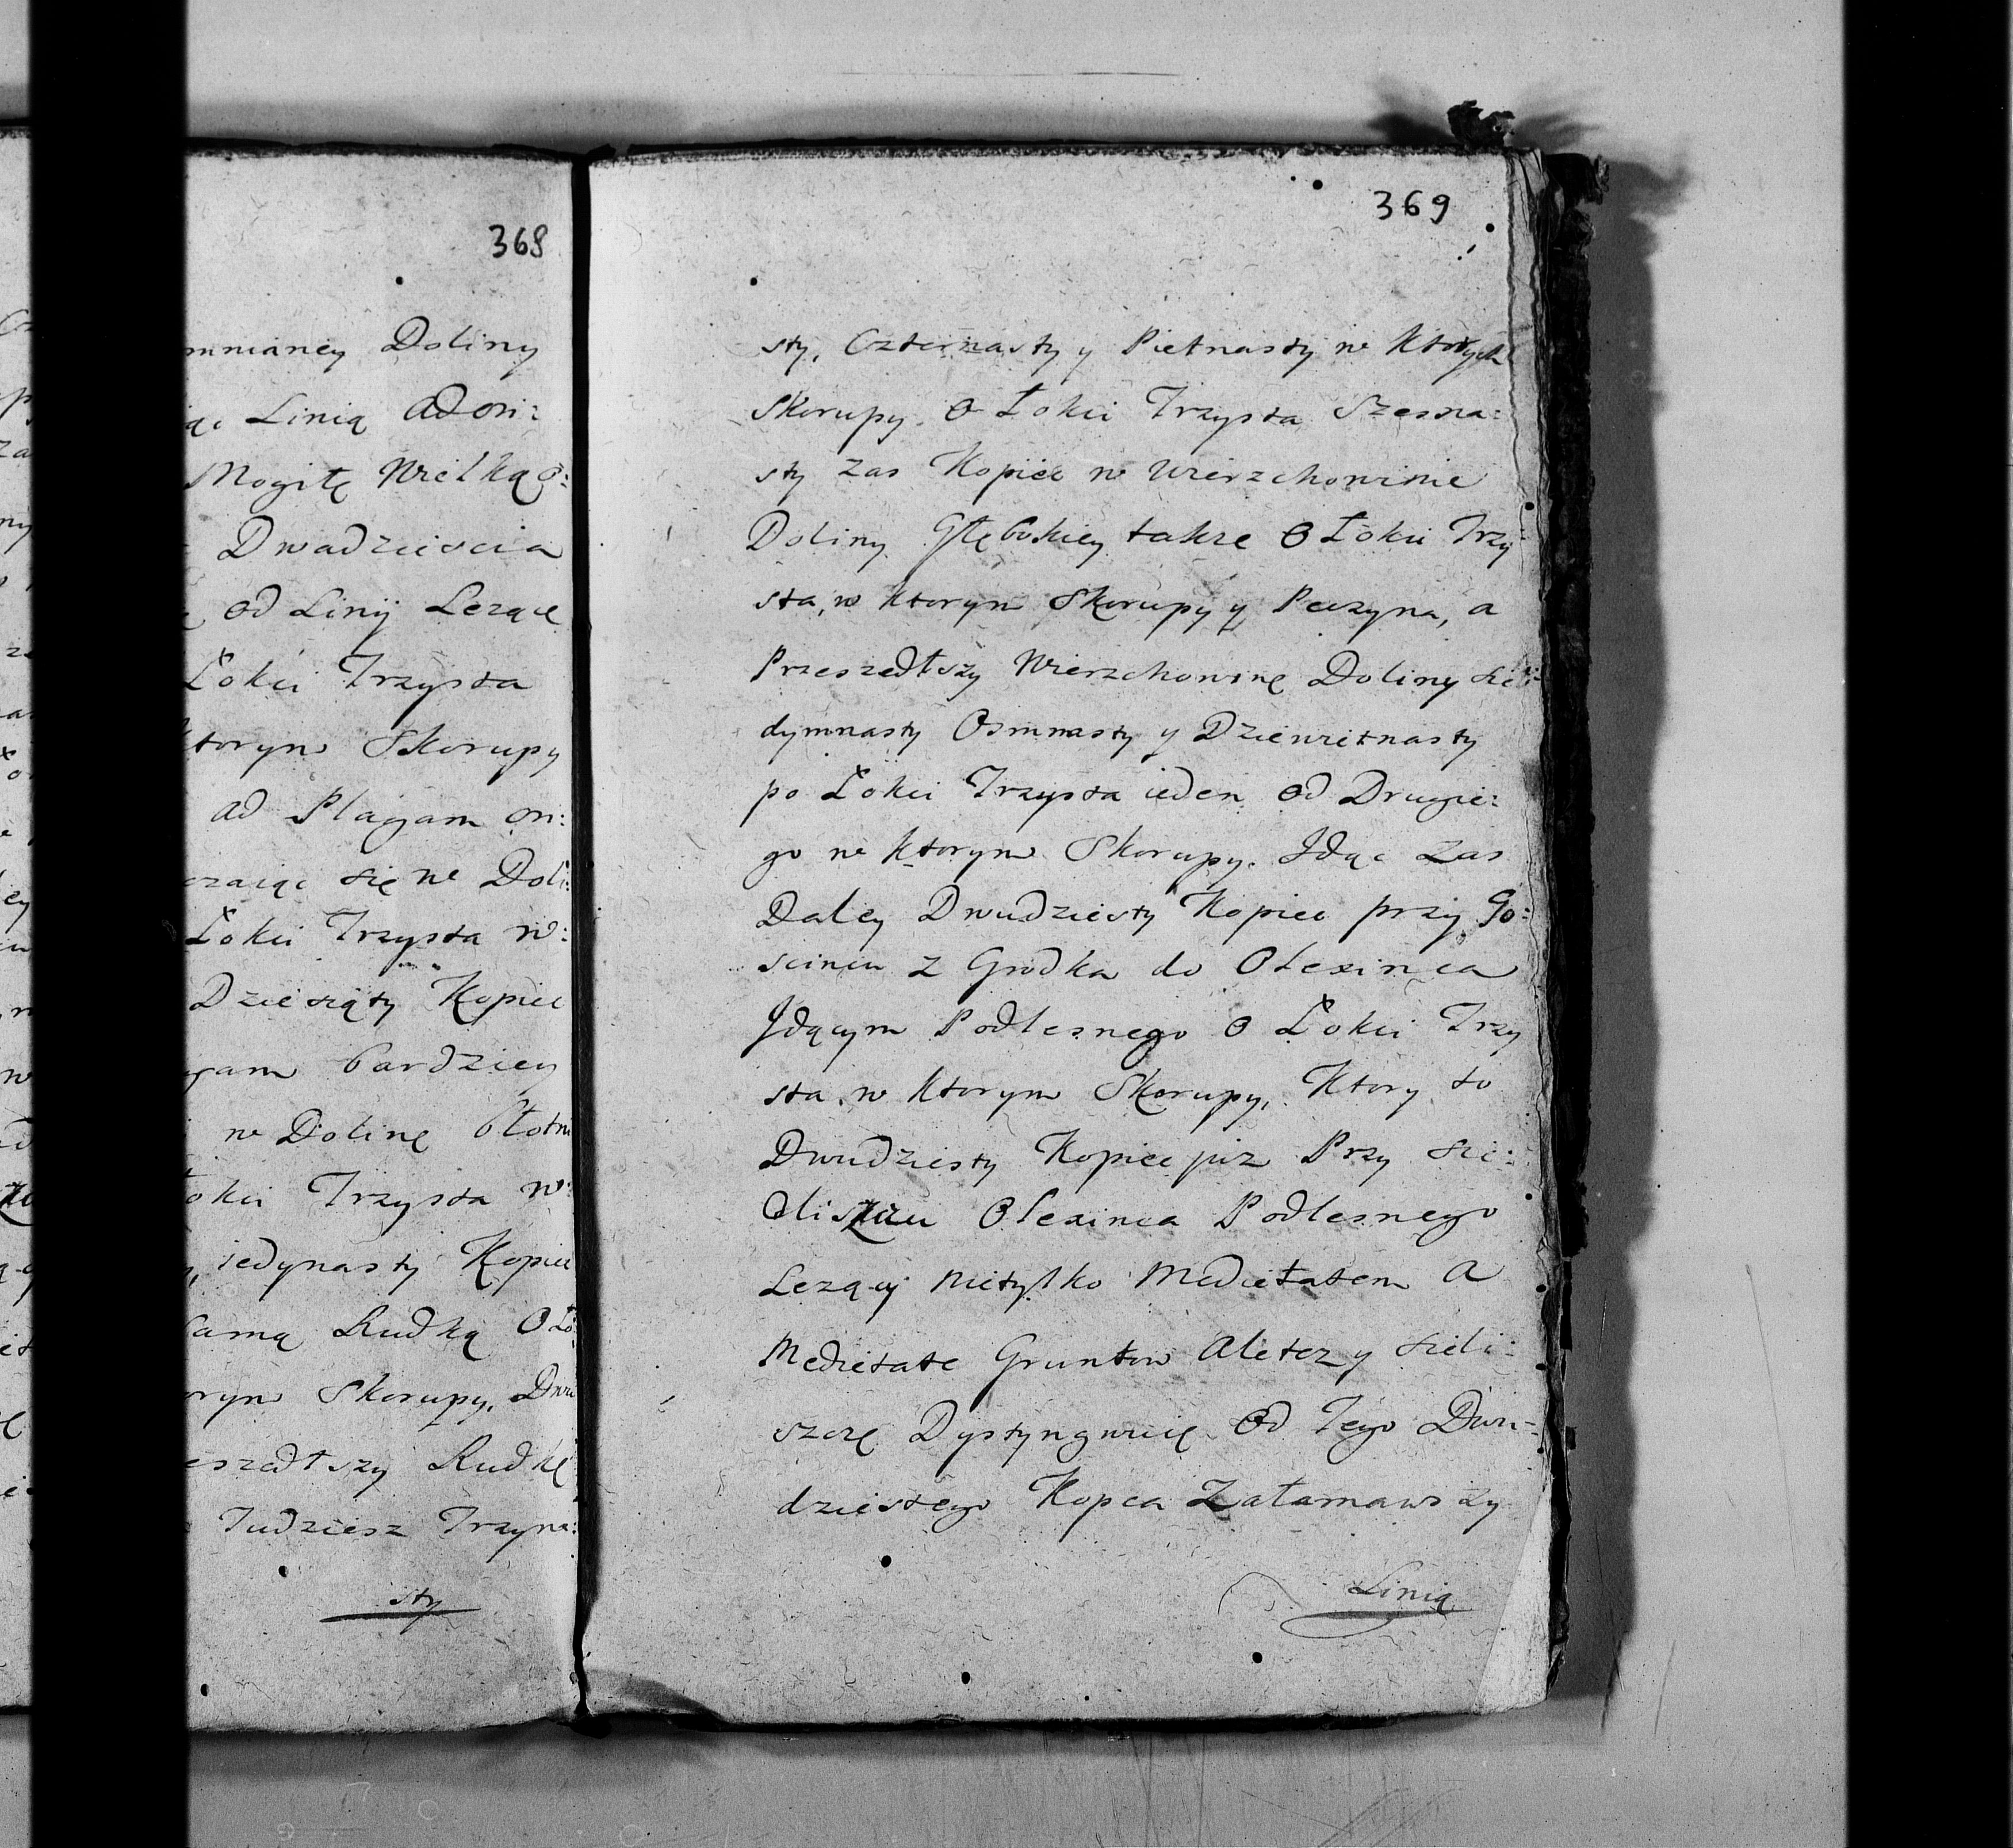 368
mnianey Doliny
iąc Linią ad ori:
Mogiłę Wielką o:
Dwadziescia
od Linij Lezące
Łokci Trzysta
ktorym Skorupy
ad Plagam ori:
czaiąc się w Doli:
Łokci Trzysta w:
Dziesiąty Kopiec
gam bardziey
w Dolinę błotni
okci Trzysta w:
iedynasty Kopiec
samą Rudką O Ło:
orym Skorupy, Dwu
eszedłszy Rudkę
Tudziesz Trzyna:
sty
369
sty, Czternasty y Pietnasty w Ktorych
Skorupy o Łokci Trzysta Szesna:
sty zas Kopiec w Wierzchowinie
Doliny Głębokiey takze o Łokci Trzy:
sta, w ktorym Skorupy y Peczyna, a
Przeszedłszy Wierzchowinę Doliny Sie:
dymnasty Osmnasty y Dziewietnasty
po Łokci Trzysta ieden od Drugie:
go w Ktorym Skorupy. Idąc zas
Daley Dwudziesty Kopiec przy Go:
scincu z Grodka do Olexinca
Idącym Podlesnego o Łokci Trzy
sta, w ktorym Skorupy, Ktory to
Dwudziesty Kopiec juz Przy Sie:
Olexinca Podlesnego
Lezący nietylko Medietatem a
Medietate Gruntow ale tez y Sieli:
szcze Dystyngwuie od Tego Dwu:
dziestego Kopca Załamawszy
Linią